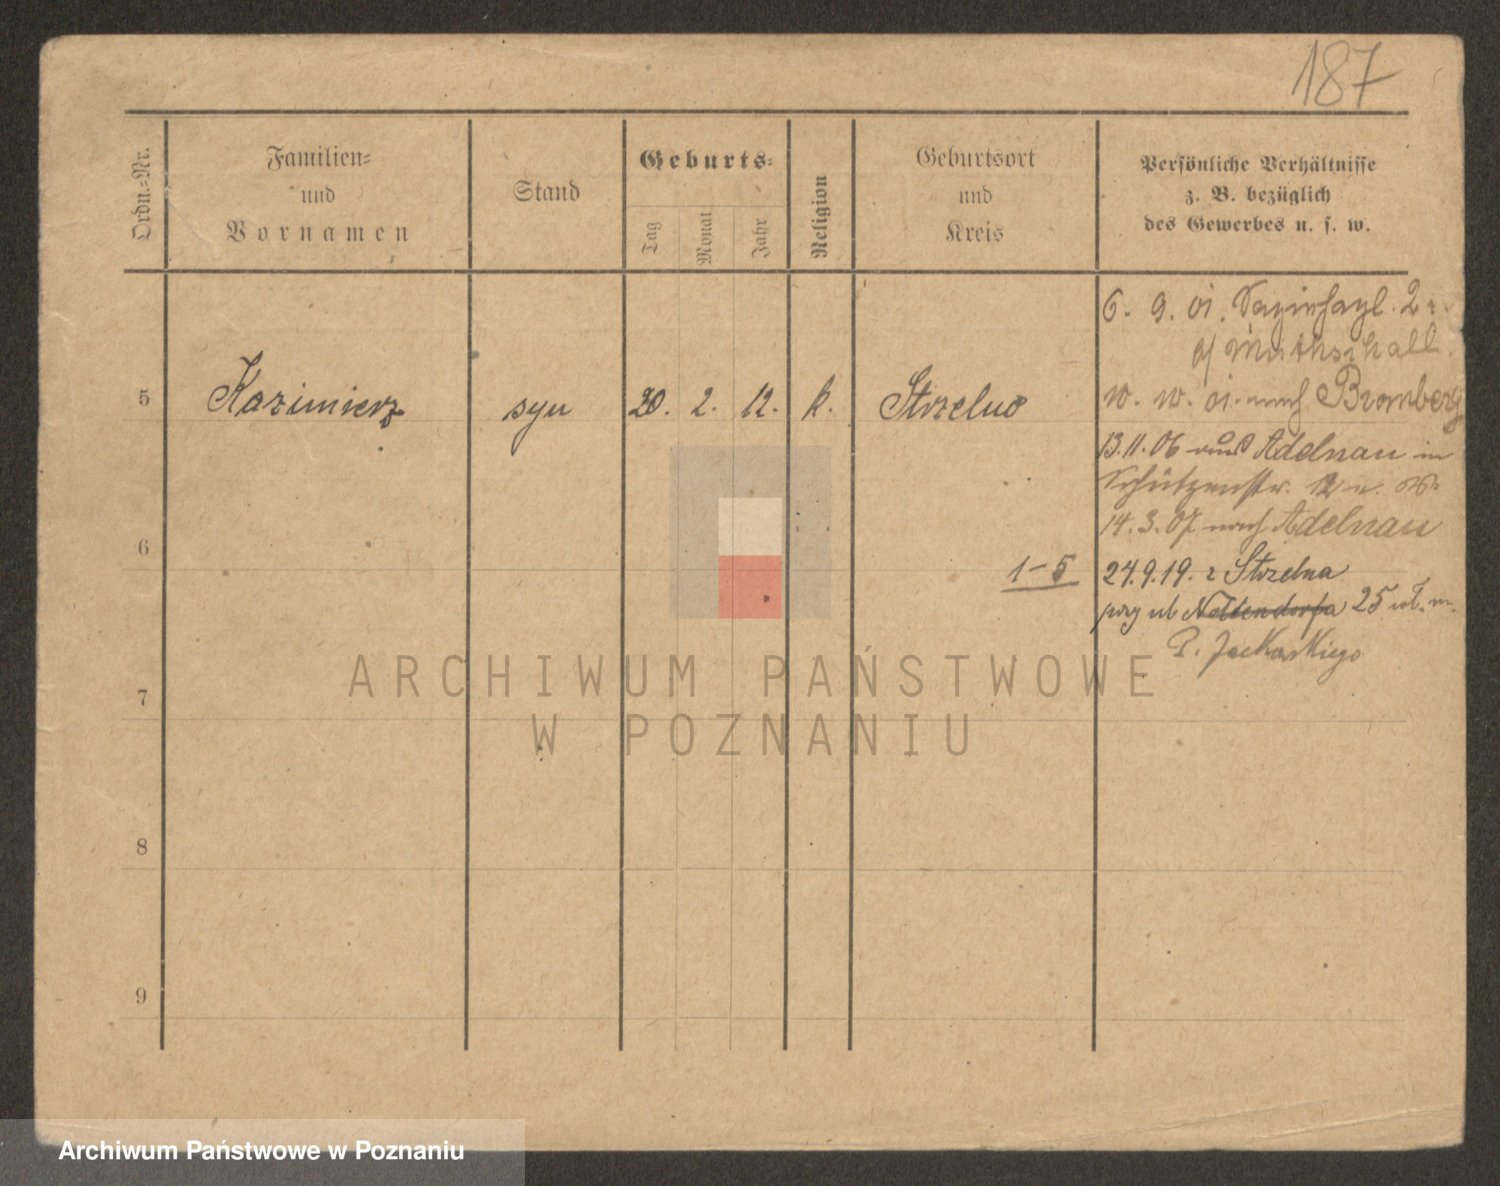 187
Ordn.-Nr.
Familien-
und
Vornamen
Stand
Geburts-
Tag
Monat
Jahr
Religion
Geburtsort
und
Kreis
Persönliche Verhältnisse
z. B. bezüglich
des Gewerbes u. s. w.
6. 9. 01.
5 Kazimierz syn 20. 2. 12. k. Strzelno
01. nach Bromberg
13.11.06 aus Adelnau in
Schützenstr.
14.3.07 nach Adelnau
6
1-5
24.9.19. z Strzelna
przy ul Nollendorfa 25 u
P. Jackowskiego
7
8
9
ARCHIWUM PAŃSTWOWE
W POZNANIU
Archiwum Państwowe w Poznaniu